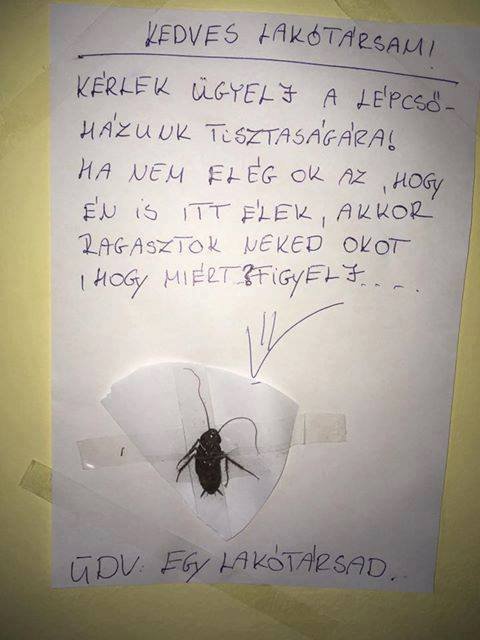 KEDVES LAKÓTÁRSAM!
KÉRLEK ÜGYELJ A LÉPCSŐ-
HÁZUNK TISZTASÁGÁRA!
HA NEM ELÉG OK AZ, HOGY
ÉN IS ITT ÉLEK, AKKOR
RAGASZTOK NEKED OKOT
, HOGY MIÉRT FIGYELJ.....
ÜDV: EGY LAKÓTÁRSAD..